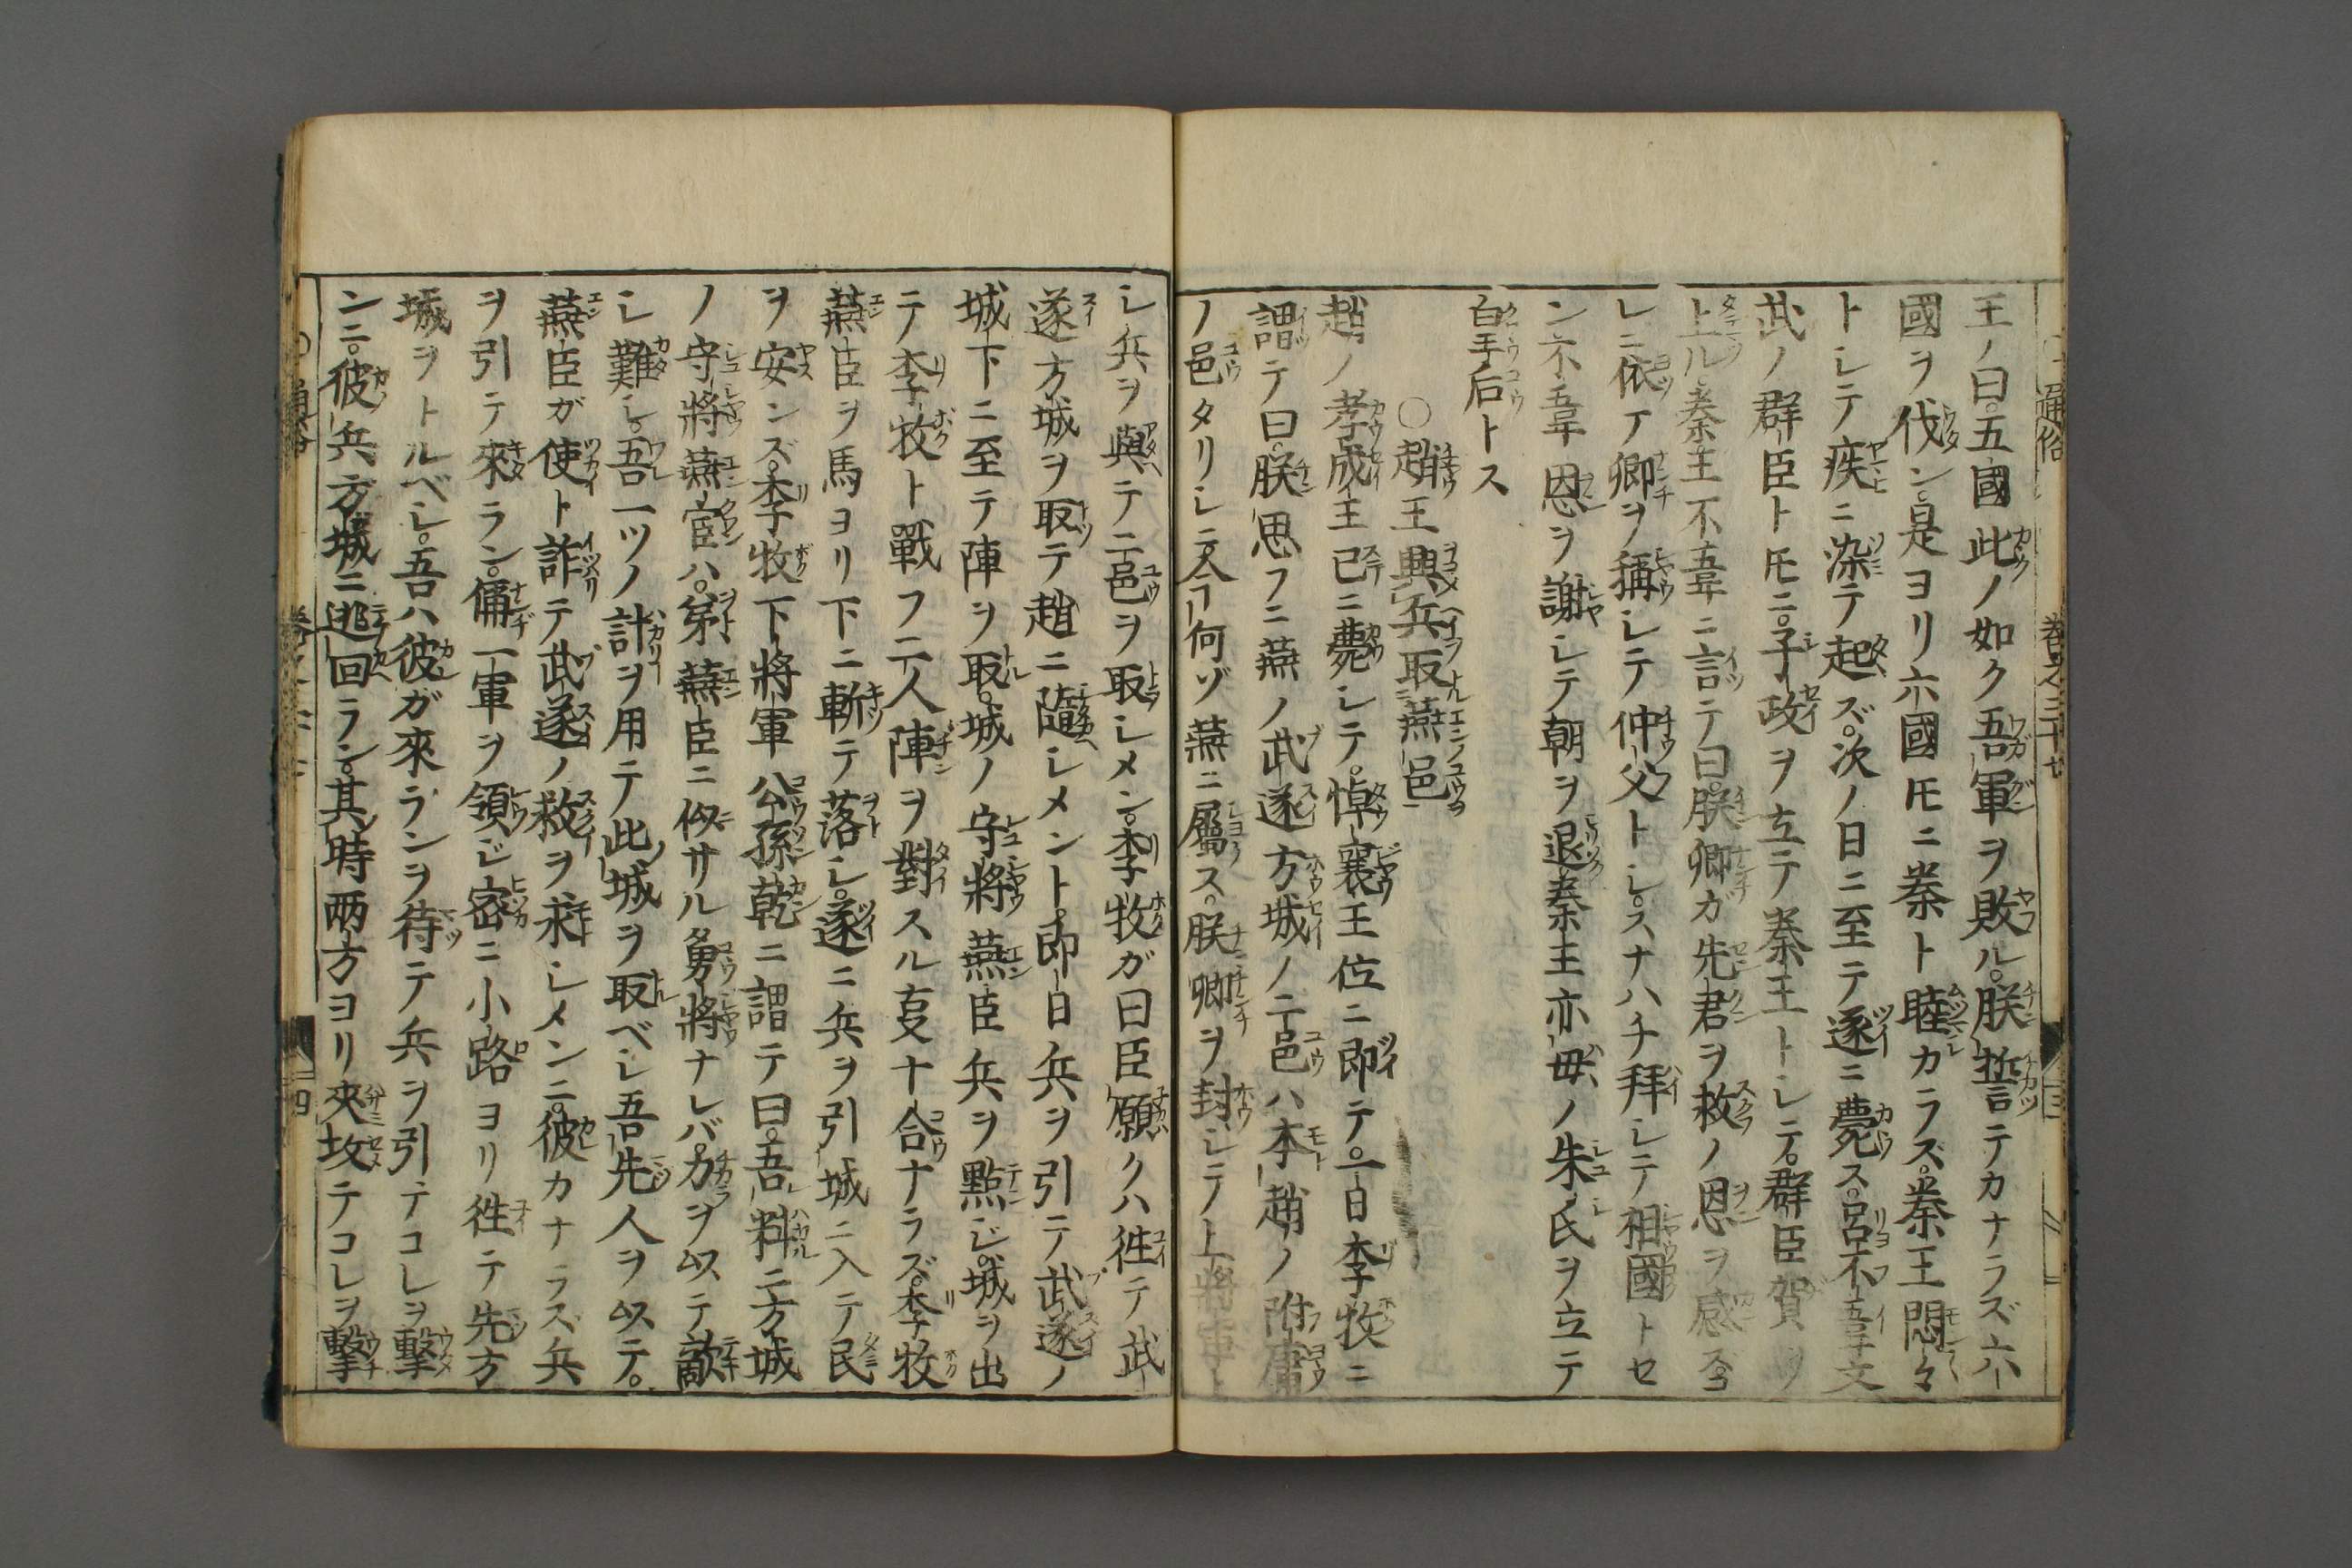 王ノ曰。五國此ノ如ク吾軍ヲ敗ル。朕誓テカナラズ六
國ヲ伐ン。是ヨリ六國𪜈ニ秦ト睦カラズ。秦王悶々
トシテ疾ニ染テ起ズ。次ノ日ニ至テ遂ニ薨ス。呂不韋文
武ノ群臣ト𪜈ニ。子政ヲ立テ秦王トシテ。群臣賀シ
上ル。秦王不韋ニ言テ曰。朕卿ガ先君ヲ救ノ恩ヲ感ス
レニ依テ卿ヲ稱シテ仲父トシ。スナハチ拜シテ相國トセ
ン不韋恩ヲ謝シテ朝ヲ退。秦王亦毋ノ朱氏ヲ立テ
皇后トス
○趙王興兵取燕邑
趙ノ孝成王已ニ薨シテ。悼襄王位ニ即テ。一日李牧ニ
謂テ曰。朕思フニ燕ノ武遂方城ノ二邑ハ本趙ノ附庸
ノ邑タリシニ今何ゾ燕ニ屬ス。朕卿ヲ封シテ上將軍ト
シ兵ヲ與テ二邑ヲ取シメン。李牧ガ曰臣願クハ徃テ武
遂方城ヲ取テ趙ニ隨シメント。即日兵ヲ引テ武遂ノ
城下ニ至テ陣ヲ取。城ノ守將燕臣兵ヲ點ジ。城ヲ出
テ李牧ト戰フ二人陣ヲ對スル𠮓十合ナラズ。李牧
燕臣ヲ馬ヨリ下ニ斬テ落シ。遂ニ兵ヲ引城ニ入テ民
ヲ安ンズ。李牧下將軍公孫乾ニ謂テ曰。吾料ニ方城
ノ守將燕宦ハ。弟燕臣ニ似サル勇將ナレバ。力ヲ以テ敵
シ難シ。吾一ツノ計ヲ用テ此城ヲ取ベシ吾先人ヲ以テ。
燕臣ガ使ト詐テ武遂ノ救ヲ求シメンニ。彼カナラス兵
ヲ引テ來ラン。儞一軍ヲ領ジ密ニ小路ヨリ徃テ先方
城ヲトルベシ。吾ハ彼ガ來ランヲ待テ兵ヲ引テコレヲ擊
ンニ。彼兵方城ニ逃回ラン。其時兩方ヨリ夾攻テコレヲ擊
通俗
卷之三十七
三
四